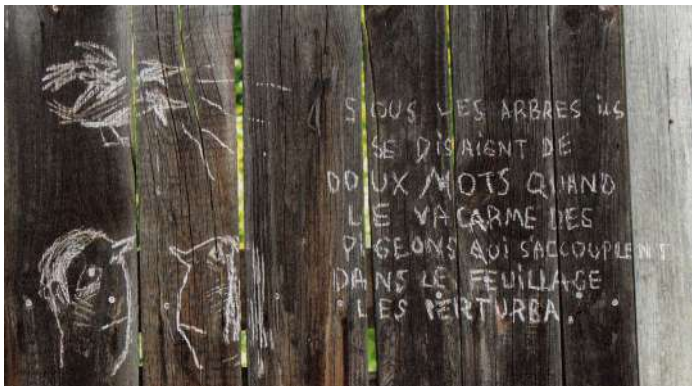 SOUS LES ARBRES ILS
SE DISAIENT DE
DOUX MOTS QUAND
LE VACARME DES
PIGEONS QUI S'ACCOUPLENT
DANS LE FEUILLAGE
LES PERTURBA.